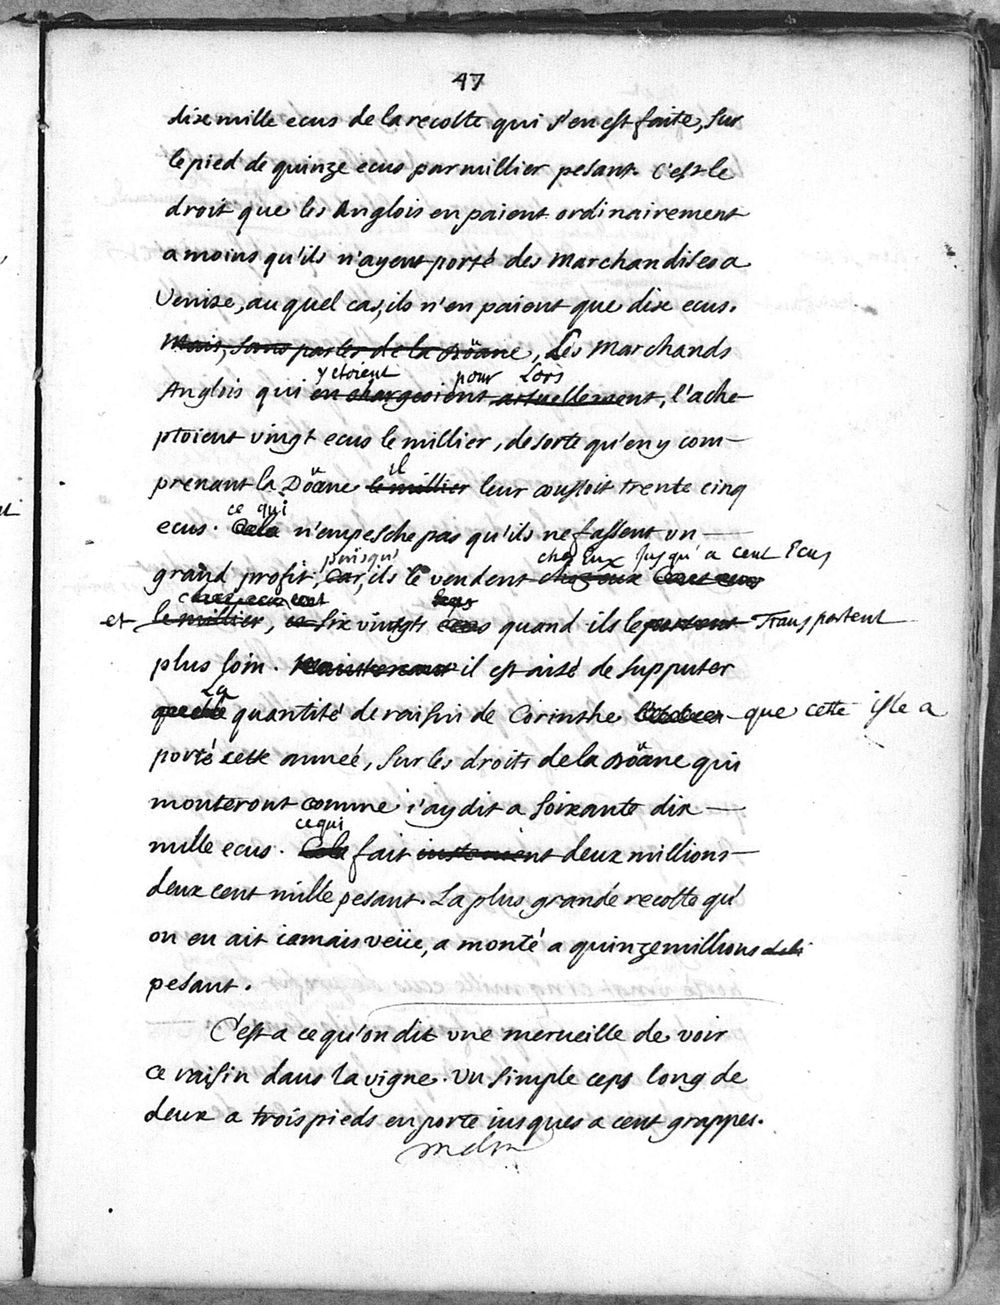 47
dixmille ecus de la recolte qui s'en est faite, sur
le pied de quinze ecus par millier pesant. c'est le
droit que les Anglois en paient ordinairement
a moins qu'ils n'ayent porté des Marchandises a
Venise, au quel cas, ils n'en paient que dix ecus.
Mais, sans parler de la Döane, Les Marchands
y etoient pour Lors
Anglois qui en chargeoient actuellement, l'ache
ptoient vingt ecus le millier, de sorte qu'en y com-
il
prenant la Döane le millier leur coustoit trente cinq
ce qui
ecus. Cela n'empesche pas qu'ils ne fassent un
puisqu' chez Eux Jusqu'a cent Ecus
grand profit, Car, ils le vendent chez eux Cent ecus
et le millier, et six vingts ecus quand ils le portent Transportent
plus loin. Maintenant il est aisé de supputer
La
quelle quantité de raisin de Corinthe que cette isle a
porté cette année, sur les droits de la Döane qui
monteront comme i'ay dit a soixante dix
ce qui
mille ecus. Cela fait deux millions
deux cent mille pesant. La plus grande recolte qu'
on en ait iamais veüe, a monté a quinze millions
pesant.
C'est a ce qu'on dit vne merueille de voir
ce raisin dans la vigne. Vn simple ceps long de
deux a trois pieds en porte iusques a cent grappes.